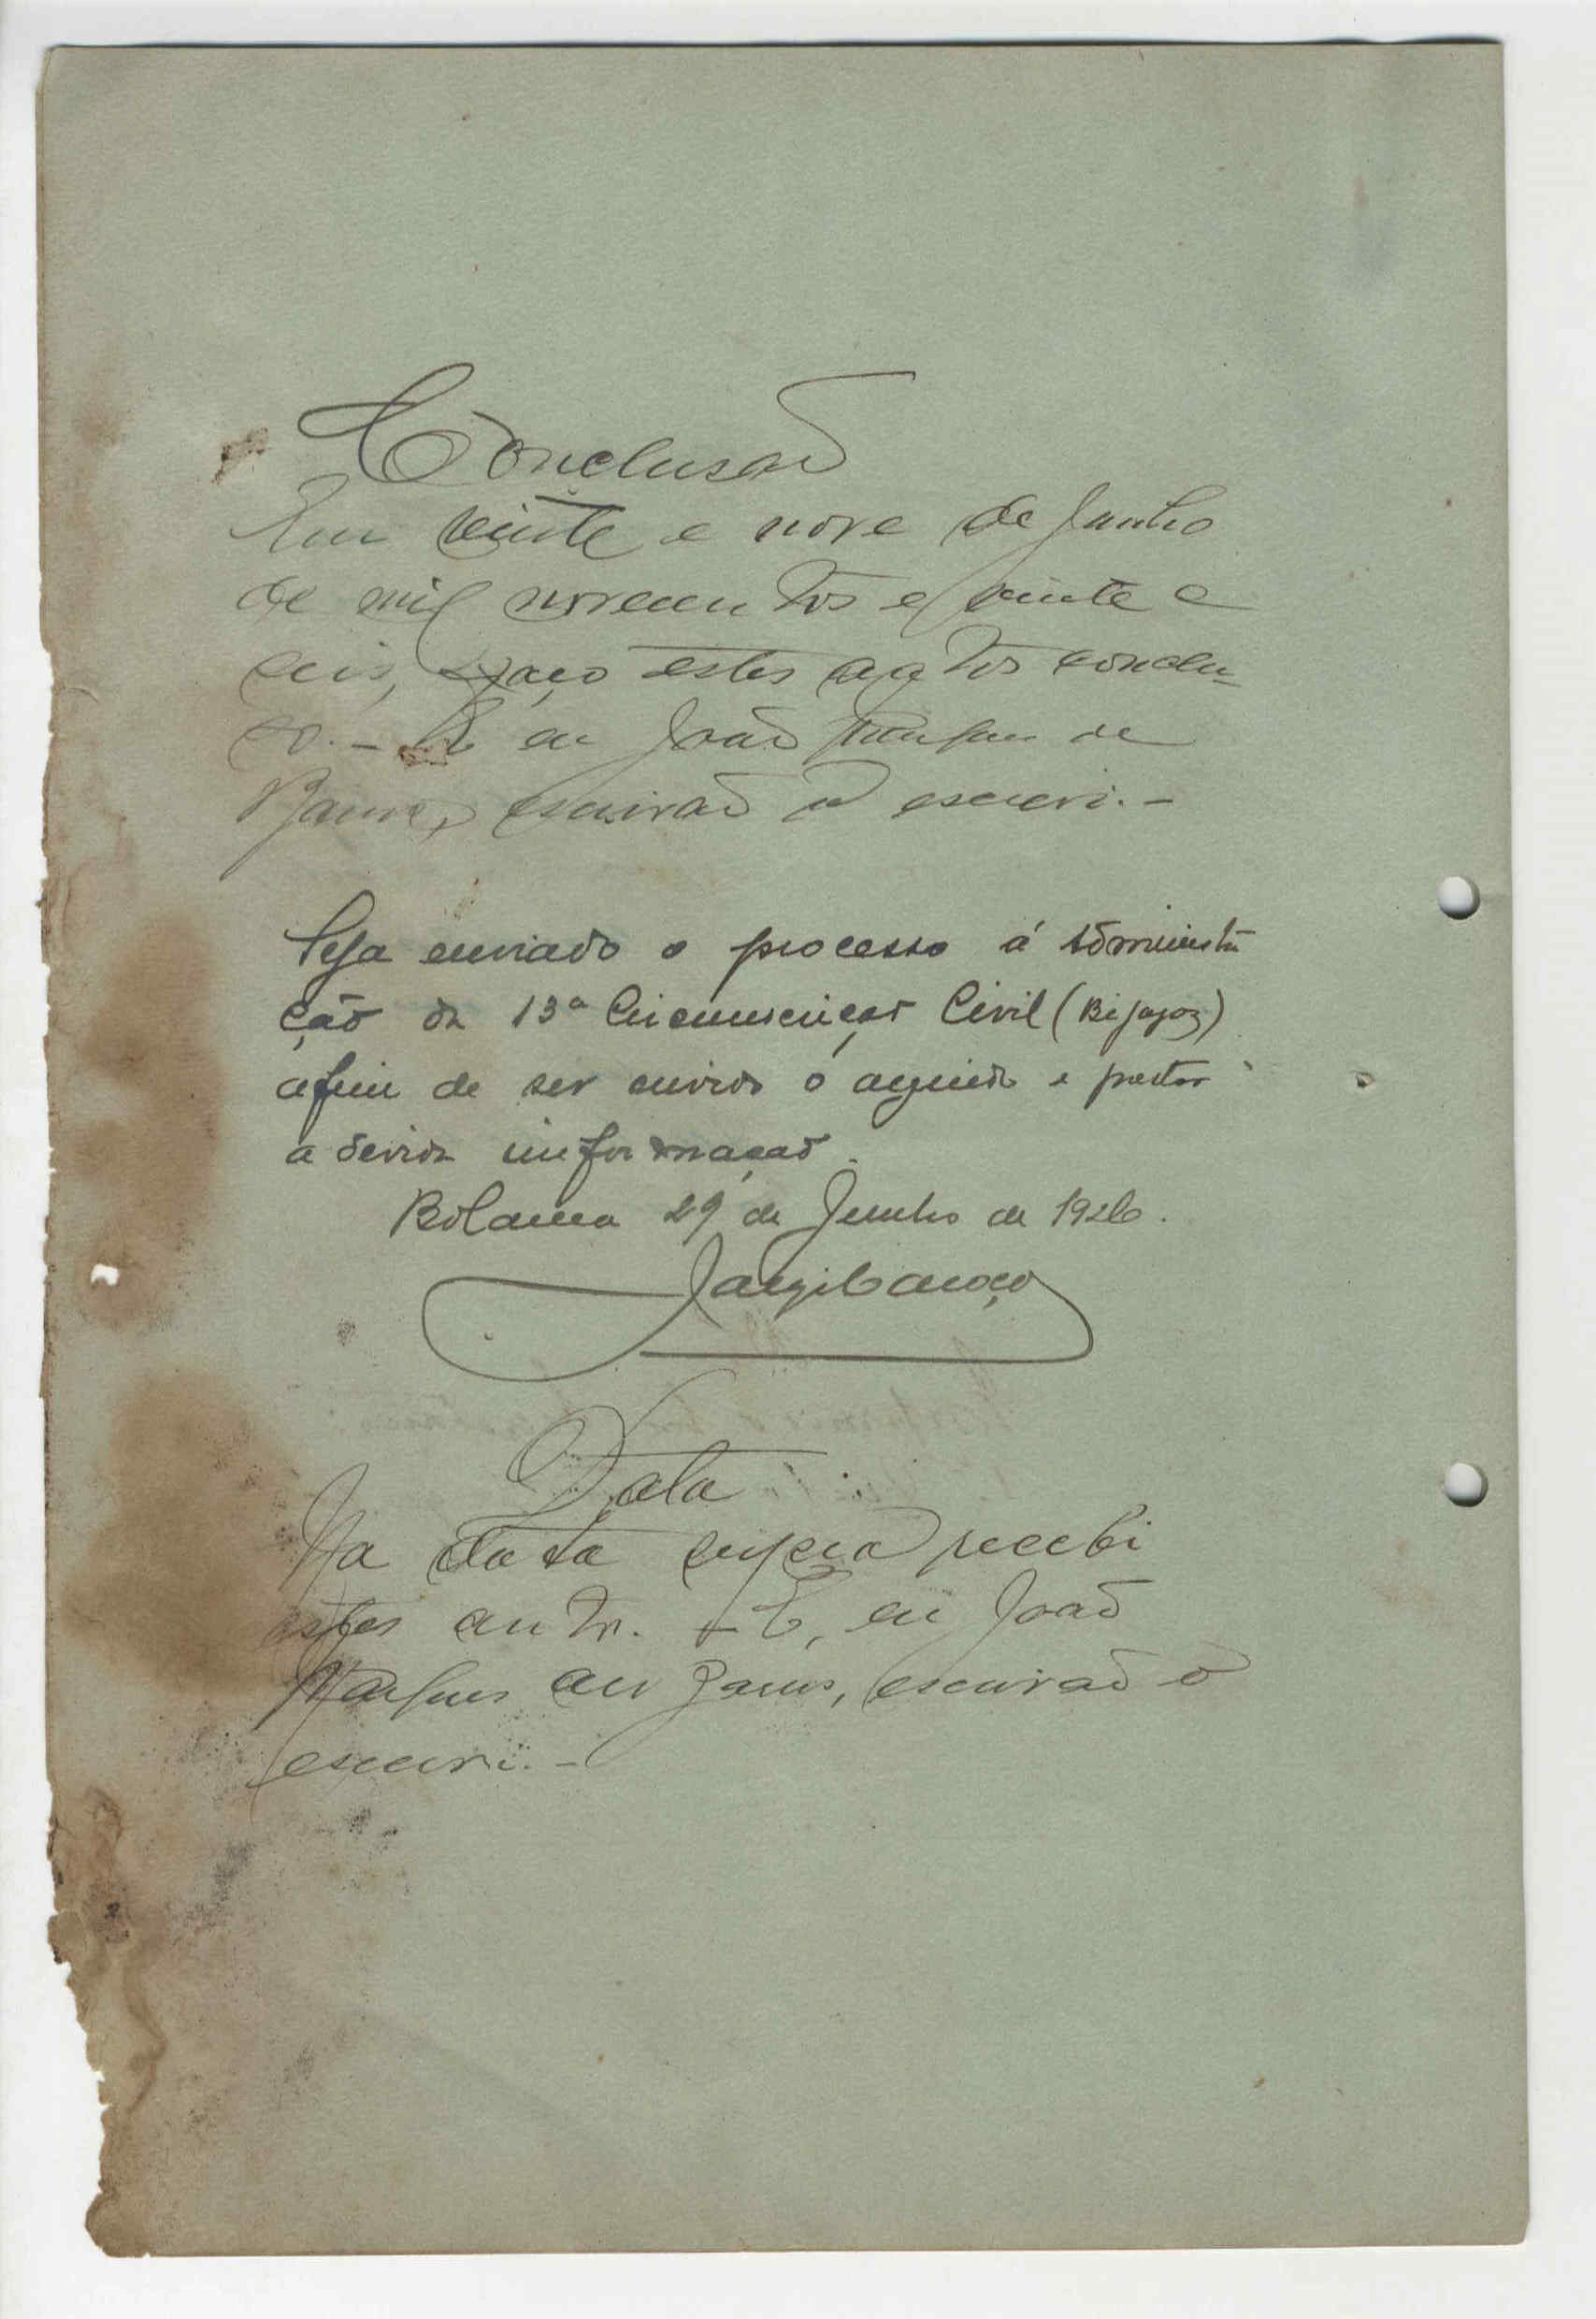 Conclusão
Em vinte e nove de Junho
de mil novecentos e vinte e
seis, faço estes autos conclu-
so. - E eu João Marques de
Barros, escrivão o escrevi. -
Seja enviado o processo á administra
ção da 13ª Circunscrição Civil (Bijagoz)
afim de ser ouvido o arguido e prestar
a devida informação.
Bolama 29 de Junho de 1926.
Data
Na data supra recebi
estes autos. - E, eu João
Marques de Barros, escrivão o
escrevi. -